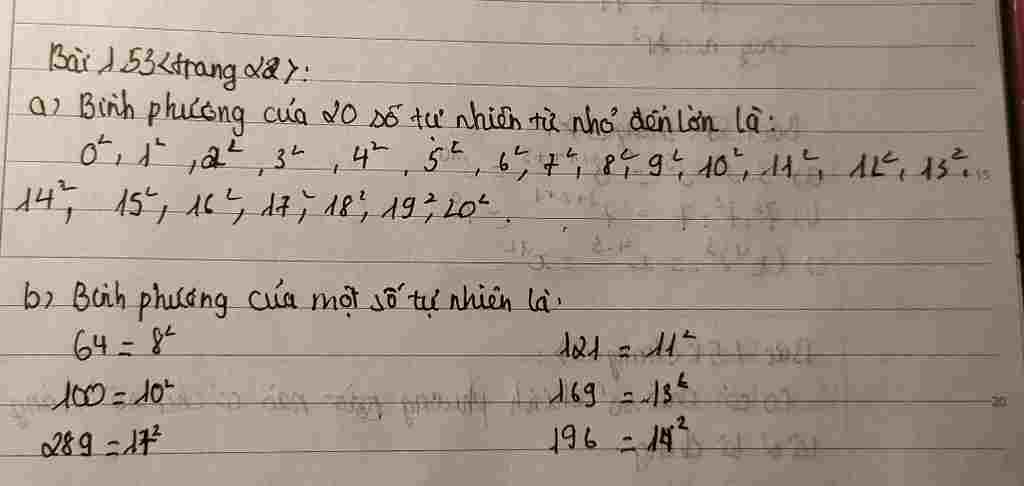 Bài 1.53 <trang 22>:
a) Bình phương của 20 số tự nhiên từ nhỏ đến lớn là:
0², 1², 2², 3², 4², 5², 6², 7², 8², 9², 10², 11², 12², 13²,
14², 15², 16², 17², 18², 19², 20².
b) Bình phương của một số tự nhiên là:
64 = 8² 121 = 11²
100 = 10² 169 = 13²
289 = 17² 196 = 14²